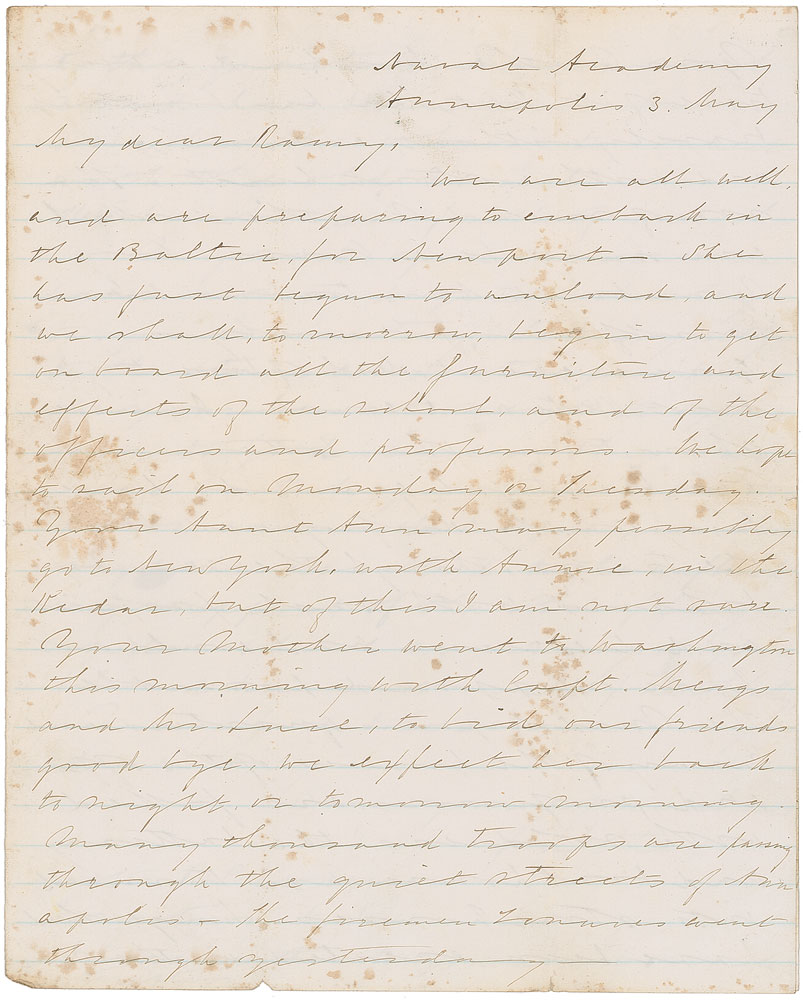 Naval Academy
Annapolis 3. May
My dear Romy,
We are all well,
and are preparing to embark in
the Baltic, for Newport — She
has just begun to unload, and
we shall, to morrow, begin to get
on board all the furniture and
effects of the school, and of the
officers and professors. We hope
to sail on Monday or Tuesday.
Your Aunt Ann may possibly
go to New York, with Annie, in the
Kedar, but of this I am not sure.
Your Mother went to Washington
this morning with Capt. Meigs
and Mr Luce, to bid our friends
good bye, we expect her back
to night, or tomorrow morning.
Many thousand troops are passing
through the quiet streets of Ann
apolis — The firemen Zouaves went
through yesterday —